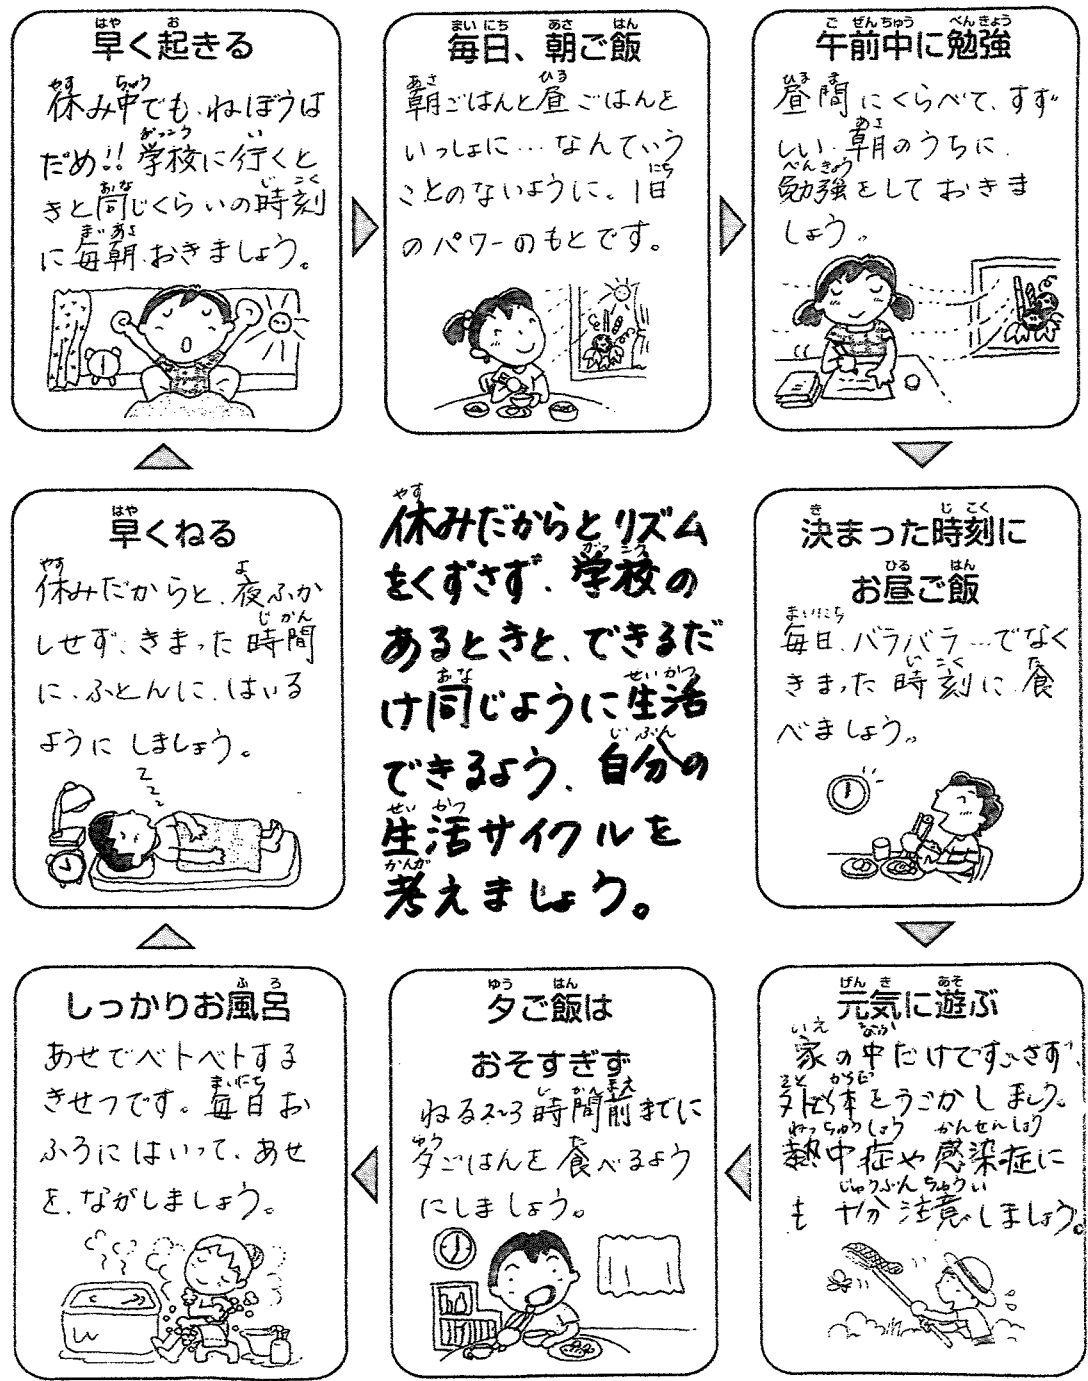 早く起きる
休み中でも、ねぼうは
だめ!! 学校に行くと
きと同じくらいの時刻
に毎朝、おきましょう。
毎日、朝ご飯
朝ごはんと昼ごはんを
いっしょに…なんていう
ことのないように。1日
のパワーのもとです。
午前中に勉強
昼間にくらべて、すず
しい朝のうちに、
勉強をしておきま
しょう。
決まった時刻に
お昼ご飯
毎日、バラバラ…でなく
きまった時刻に食
べましょう。
元気に遊ぶ
家の中だけですごさず、
外で体をうごかしましょう。
熱中症や感染症に
も十分注意しましょう。
夕ご飯は
おそすぎず
ねる2~3時間前までに
夕ごはんを食べるよう
にしましょう。
しっかりお風呂
あせでベトベトする
きせつです。毎日お
ふろにはいって、あせ
を、ながしましょう。
早くねる
休みだからと、夜ふか
しせず、きまった時間
に、ふとんに、はいる
ようにしましょう。
休みだからとリズム
をくずさず、学校の
あるときと、できるだ
け同じように生活
できるよう、自分の
生活サイクルを
考えましょう。